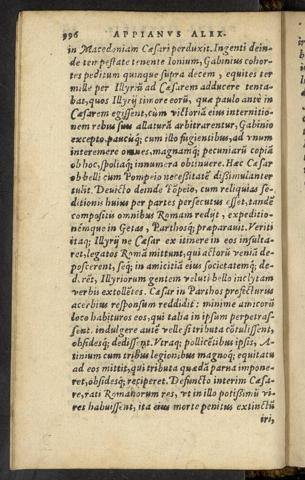 996 APPIANVS ALEX.
in Macedoniam Cæsari perduxit. Ingenti dein-
de tempestate tenente Ionium, Gabinius cohor-
tes peditum quinque supra decem, equites ter
mille per Illyriũ ad Cæsarem adducere tenta-
bat, quos Illyrij timore eorũ, quæ paulo ante in
Cæsarem egissent, cùm victoriã eius internitio-
nem rebus suis allaturã arbitrarentur, Gabinio
excepto, paucisq́; cum illo fugientibus, ad vnum
interemere omnes, magnamq́; pecuniarũ copiã
ob hoc, spoliaq́; innumera obtinuere. Hæc Cæsar
ob belli cum Pompeio necessitatẽ dissimulanter
tulit. Deuicto deinde Põpeio, cum reliquias se-
ditionis huius per partes persecutus esset, tandẽ
compositis omnibus Romam redijt, expeditio-
némque in Getas, Parthosq́; præparauit. Veriti
itaq́; Illyrij ne Cæsar ex itinere in eos insulta-
ret, legatos Romã mittunt, qui actorũ veniã de-
poscerent, seq́; in amicitiã eius societatemq́; de-
derẽt, Illyriorum gentem veluti bello inclytam
verbis extollẽtes. Cæsar in Parthos profecturus
acerbius responsum reddidit: minime amicorũ
loco habituros eos, qui talia in ipsum perpetras-
sent. indulgere autẽ velle si tributa cõtulissent,
obsidesq́; dedissent. Vtraq́; pollicẽtibus ipsis, A-
tinium cum tribus legionibus magnoq́; equitatu
ad eos mittit, qui tributa quædã parua impone-
ret, obsidesq́; reciperet. Defuncto interim Cæsa-
re, rati Romanorum res, vt in illo potissimũ vi-
res habuissent, ita eius morte penitus extinctũ
iri,